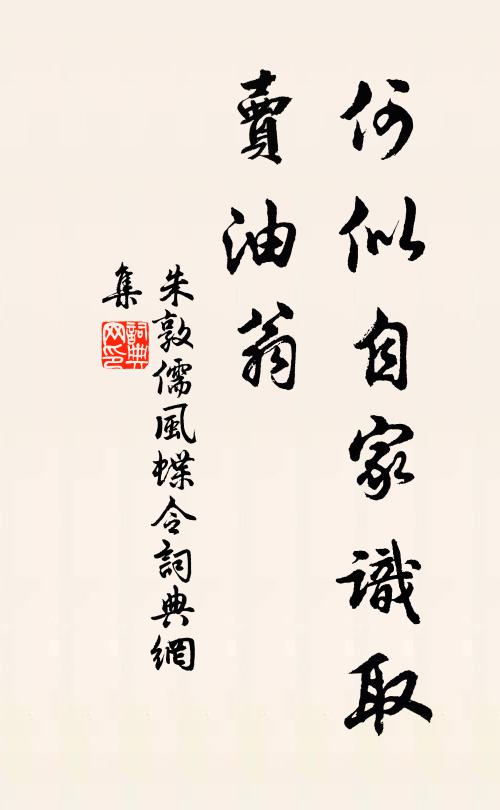 何似自家識取
賣油翁
朱敦儒風蝶令詞典網
集
詞典
网印